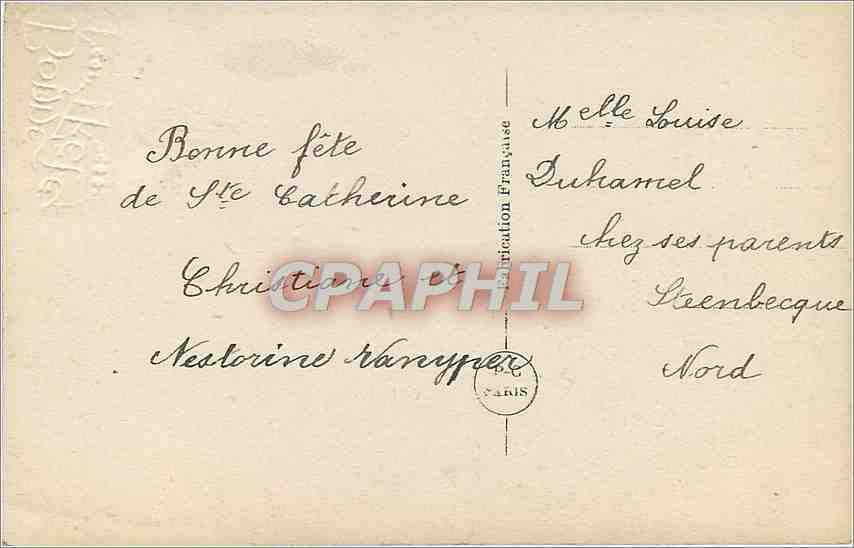 Bonne fête
de Ste Catherine
Christiane et
Nestorine Vanyper
Melle Louise
Duhamel
chez ses parents
Steenbecque
Nord
Fabrication Française
PARIS
CPAPHIL